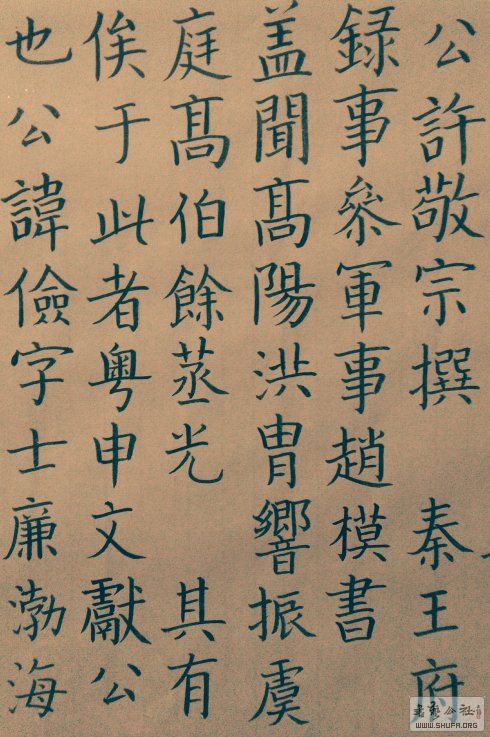 公許敬宗撰 秦王府
録事叅軍事趙模書
盖聞髙陽洪胄響振虞
庭髙伯餘蒸光 其有
俟于此者粤申文獻公
也公諱儉字士廉渤海
書藝公社
WWW.SHUFA.ORG